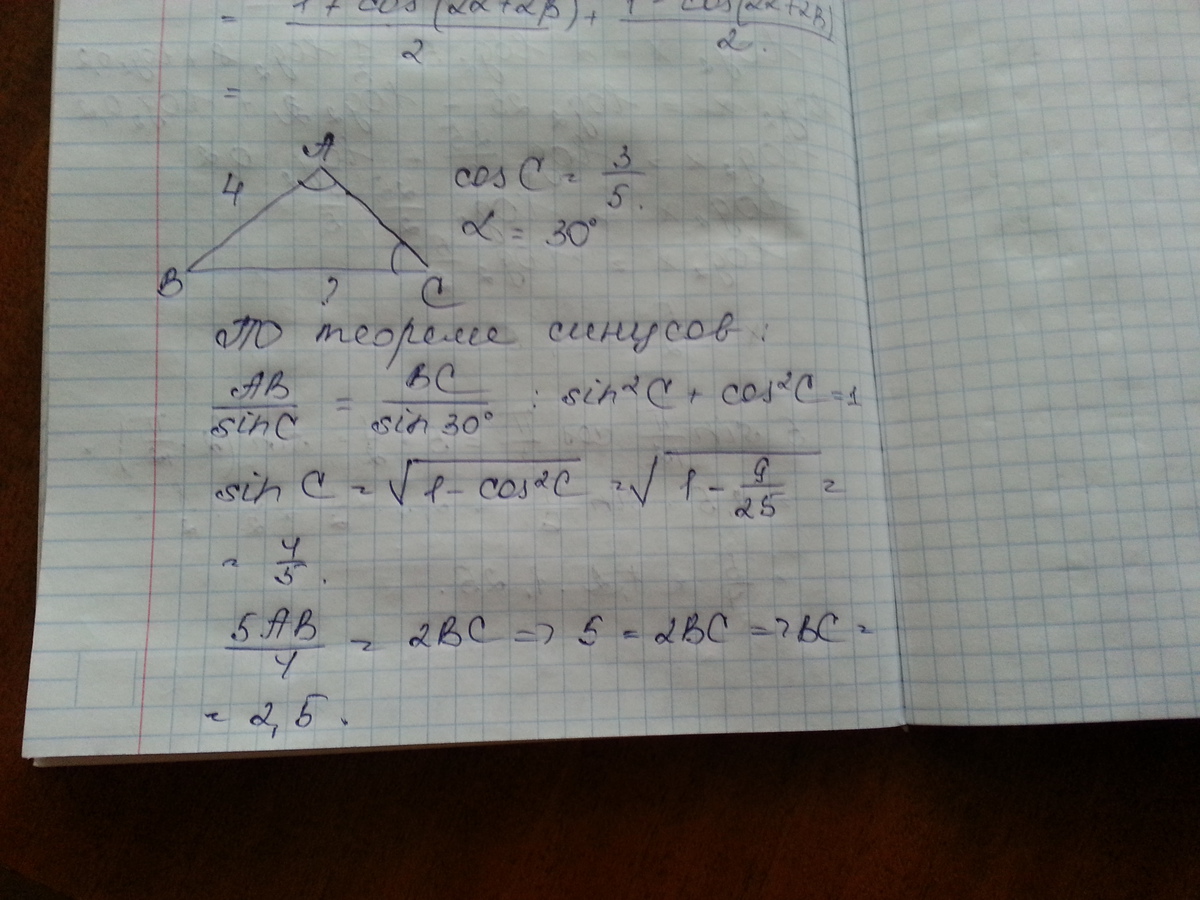 = 1 + cos(2α+2β)/2 + 1 - cos(2α+2β)/2.
=
A
4
B
?
C
cos C = 3/5.
α = 30°
По теореме синусов:
AB/sin C = BC/sin 30° : sin²C + cos²C = 1
sin C = √(1 - cos²C) = √(1 - 9/25) =
= 4/5.
5AB/4 = 2BC => 5 = 2BC => BC =
= 2,5.